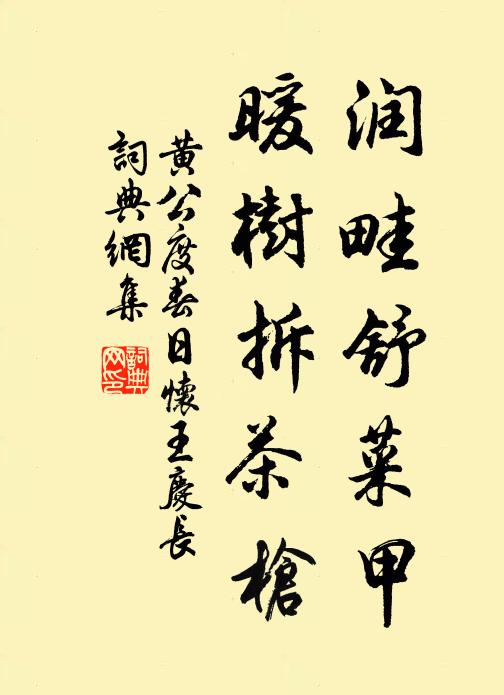 润畦舒菜甲
暖樹拆茶槍
黃公度春日懷王慶長
詞典網集
詞典
网印